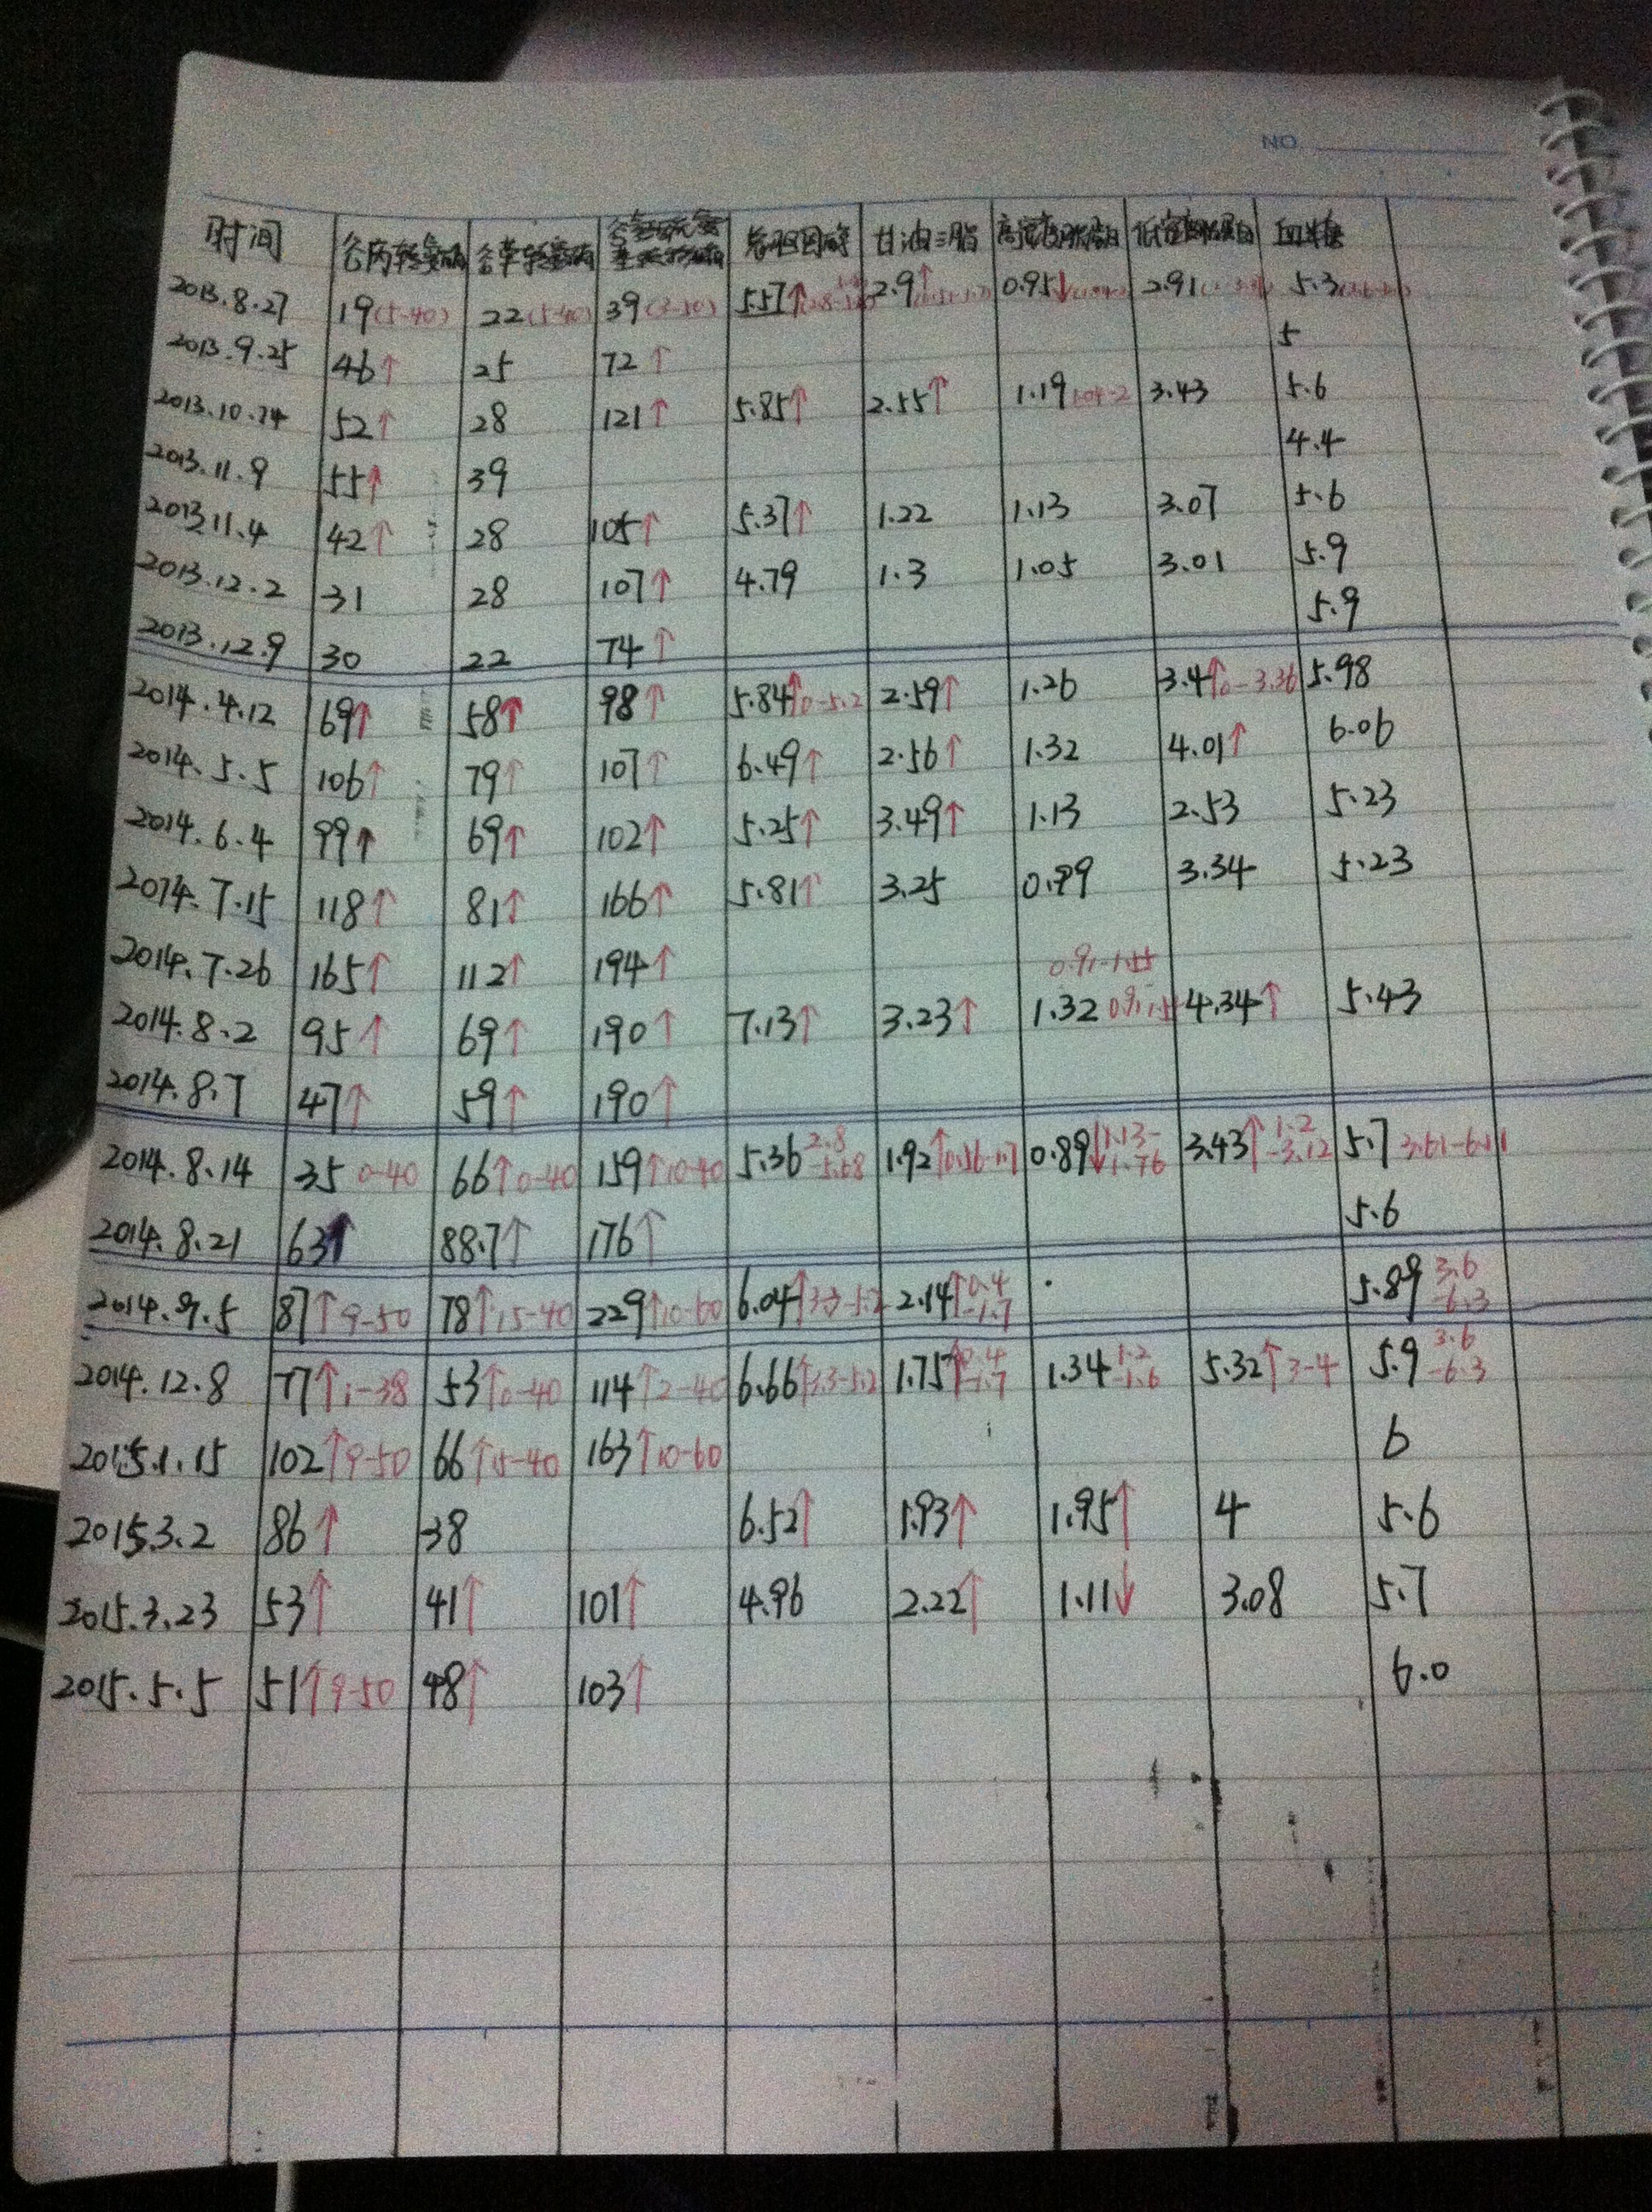 NO.
时间 谷丙转氨酶 谷草转氨酶 总胆固醇 甘油三脂 高密度脂蛋白 低密度脂蛋白 血糖
2013.8.27 19(5-40) 22(5-40) 39 5.57↑ 2.9↑ 0.95↓ 2.91 5.3
2013.9.25 46↑ 25 72↑ 5
2013.10.14 52↑ 28 121↑ 5.85↑ 2.55↑ 1.19 1.04-2 3.43 5.6
2013.11.9 55↑ 39 4.4
2013.11.4 42↑ 28 105↑ 5.37↑ 1.22 1.13 3.07 5.6
2013.12.2 31 28 107↑ 4.79 1.3 1.05 3.01 5.9
2013.12.9 30 22 74↑ 5.9
2014.4.12 69↑ 58↑ 98↑ 5.84↑0-5.2 2.59↑ 1.26 3.4↑0-3.36 5.98
2014.5.5 106↑ 79↑ 107↑ 6.49↑ 2.56↑ 1.32 4.01↑ 6.06
2014.6.4 99↑ 69↑ 102↑ 5.25↑ 3.49↑ 1.13 2.53 5.23
2014.7.15 118↑ 81↑ 166↑ 5.81↑ 3.25 0.99 3.34 5.23
2014.7.26 165↑ 112↑ 194↑
0.91-1.55
2014.8.2 95↑ 69↑ 190↑ 7.13↑ 3.23↑ 1.32 4.34↑ 5.43
2014.8.7 47↑ 59↑ 190↑
2014.8.14 35 0-40 66↑0-40 159↑10-40 5.36 2.8-5.68 1.92↑0.56-1.7 0.89↓1.13-1.76 3.43↑1.2-3.12 5.7 3.61-6.11
2014.8.21 63↑ 88.7↑ 176↑ 5.6
2014.9.5 87↑9-50 78↑15-40 229↑10-60 6.04↑3.3-5.2 2.14↑0.4-1.7 5.89 3.6-6.3
2014.12.8 77↑1-38 53↑0-40 114↑2-40 6.66↑3.3-5.2 1.75↑0.4-1.7 1.34 1.2-1.6 5.32↑3-4 5.9 3.6-6.3
2015.1.15 102↑9-50 66↑15-40 163↑10-60 6
2015.3.2 86↑ 38 6.52↑ 1.93↑ 1.95↑ 4 5.6
2015.3.23 53↑ 41↑ 101↑ 4.96 2.22↑ 1.11↓ 3.08 5.7
2015.5.5 51↑9-50 48↑ 103↑ 6.0